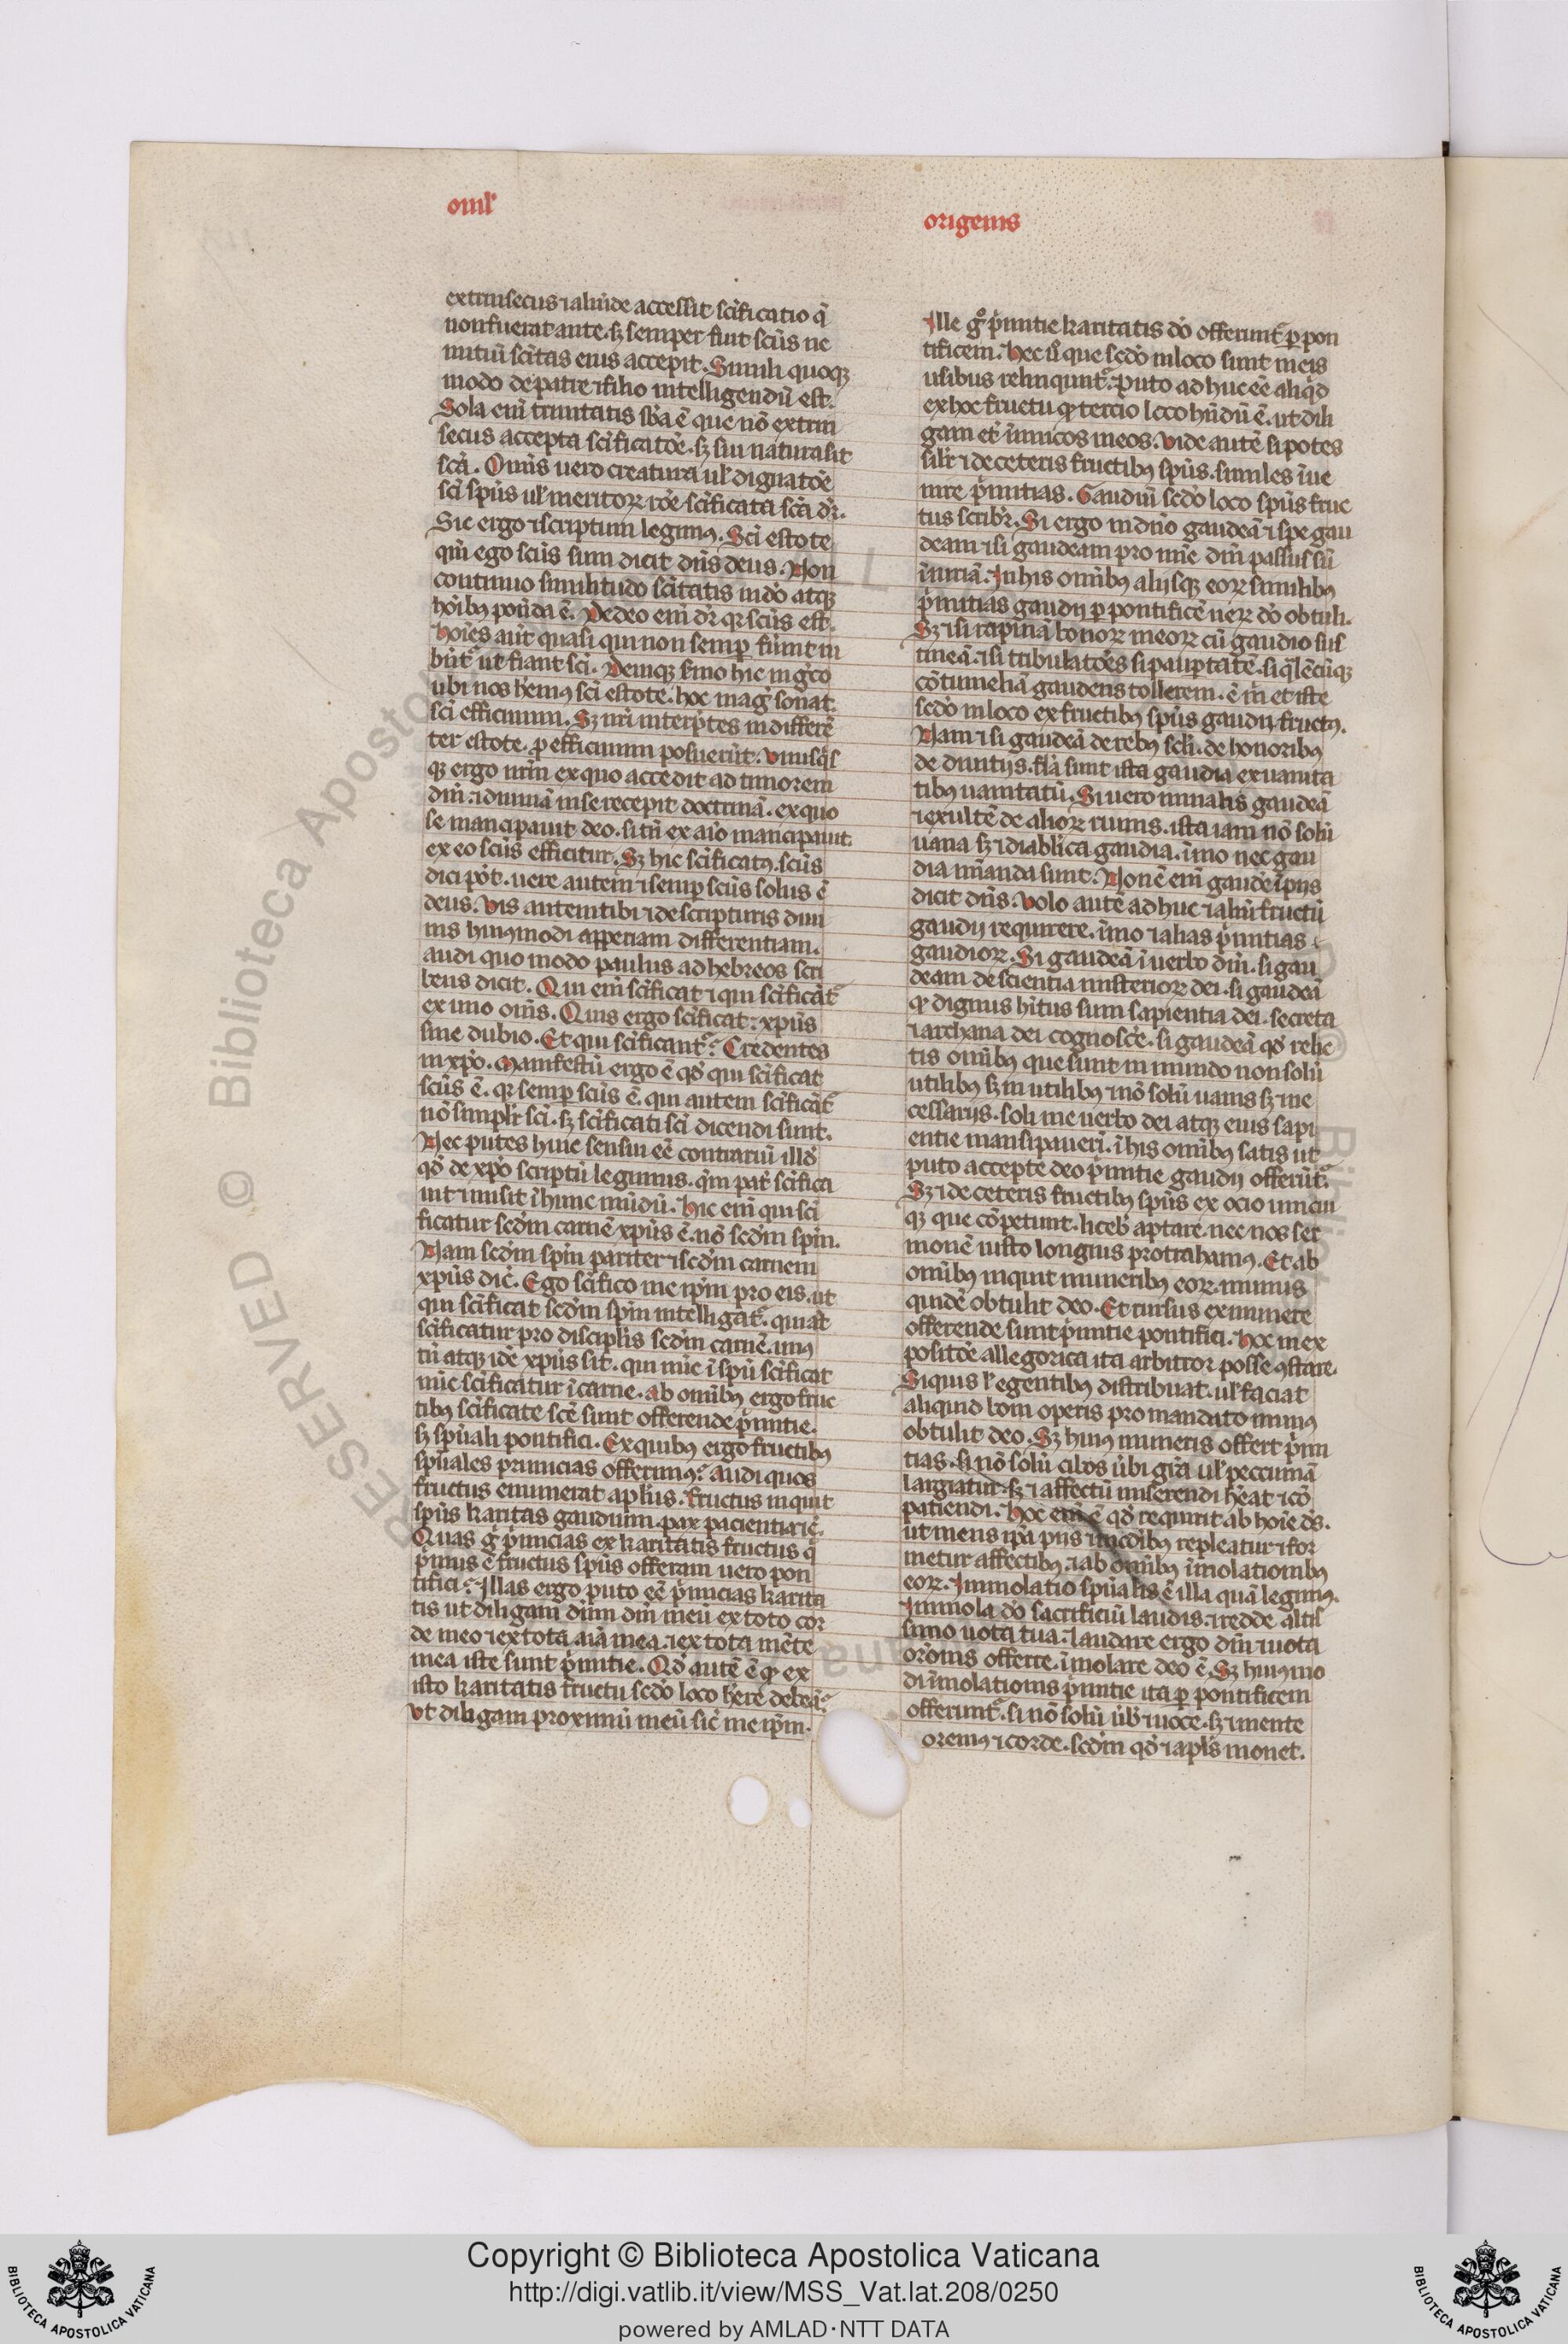 omlʼ
origenis
extrinsecus ⁊ aliūde accessit scīficatio q̄
non fuerat ante. sꝫ semper fuit scūs ne
initiū scītas eius accepit. Simili quoqꝫ
modo de patre ⁊ filio intelligendū est.
Sola enī trinitatis sb̄a ē que nō extrin
secus accepta scīficatōe. sꝫ sui natura sit
scā. Om̄is uero creatura ul̓ dignatōe
scī spūs ul̓ meritoꝝ rōe scīficata scā dr̄.
Sic ergo ⁊ scriptum legimꝰ. Scī estote
qm̄ ego scūs sum dicit dn̄s deus. Non
continuo similitudo scītatis in dō atqꝫ
hoībꝰ ponēda ē. De deo enī dr̄ qꝛ scūs est.
hoīes aūt quasi qui non semꝑ fuīnt iu
bēt̃ ut fiant scī. Deniqꝫ sermo hic in gͣco
ubi nos hēmꝰ scī estote. hoc magͥ sonat.
scī efficimini. Sꝫ nr̄i interp̄tes indifferē
ter estote. ꝓ efficimini posuerūt. Vnusqͥs
qꝫ ergo nr̄m ex quo accedit ad timorem
dīni. ⁊ diuinā in se recepit doctrinā. ex quo
se mancipauit deo. si tn̄ ex aīo mancipauit.
ex eo scūs efficitur. Sꝫ hic scīficatꝰ. scūs
dici pōt. uere autem ⁊ semꝑ scūs solus ē
deus. Vis autem tibi ⁊ de scripturis diui
nis huiꝰmodi apperiam differentiam.
audi quo modo paulus ad hebreos scri
bens dicit. Qui enī scīficat ⁊ qui scīficāt̃
ex uno om̄s. Quis ergo scīficat: xp̄us
sine dubio. Et qui scīficant̃? Credentes
in xp̄o. Manifestū ergo ē qd̓ qui scīficat
scūs ē. qꝛ semꝑ scūs ē. qui autem scīficāt̃
nō simplr̄ scī. sꝫ scīficati scī dicendi sunt.
Nec putes huic sensui eē contrariū illd̓
qd̓ de xp̄o scriptū legimus. qm̄ pat̓ scīfica
uit ⁊ misit ī hunc mūdū. Hic enī qui scī
ficatur scdm̄ carnē xp̄us ē. nō scdm̄ spm̄.
Nam scdm̄ spm̄ pariter ⁊ scdm̄ carnem
xp̄us dic̄. Ego scīfico me ip̄m pro eis. ut
qui scīficat scdm̄ spm̄ intelligat̃. qui at̄
scīficatur pro disciplīs scdm̄ carnē. unꝰ
tn̄ atqꝫ idē xp̄us sit. qui nūc ī spū scīficat
nūc scīficatur ī carne. ab om̄ibꝰ ergo fruc
tibꝰ scīficate scē sunt offerende pͥmitie.
sꝫ spūali pontifici. Ex quibꝰ ergo fructibꝰ
spūales primicias offerimꝰ? Audi quos
fructus enumerat apl̄us. fructus inquit
spūs karitas gaudium. pax pacientia ⁊c̄.
Quas gͦ pͥmicias ex karitatis fructus qͥ
pͥmus ē fructus spūs offeram uero pon
tifici? Illas ergo puto eē pͥmicias karita
tis ut diligam dn̄m dm̄ meū ex toto cor
de meo ⁊ ex tota aīa mea. ⁊ ex tota mēte
mea iste sunt pͥmitie. Qd̓ autē ē qd̓ ex
isto karitatis fructu scd̓o loco hēre debeā?
Vt diligam proximū meū sic̄ me ip̄m.
Ille gͦ pͥmitie karitatis dō offerunt̃ ꝑ pon
tificem. Hec ū que scd̓o in loco sunt meis
usibus relinqunt̃. puto ad huc eē aliqͥd
ex hoc fructu qd̓ tercio loco hn̄dū ē. ut dili
gam et̄ inimicos meos. Vide autē si potes
silr̄ ⁊ de ceteris fructibꝰ spūs. similes īue
nire pͥmitias. Gaudiū scd̓o loco spūs fruc
tus scribr̄. Si ergo in dn̄o gaudeā ⁊ spe gau
deam ⁊ si gaudeam pro noīe dīni passus sū
īiuriā. In his om̄ibꝰ aliisqꝫ eoꝝ similibꝰ
pͥmitias gaudij ꝑ pontificē ueꝝ dō obtuli.
Sꝫ ⁊ si rapinā bonoꝝ meoꝝ cū gaudio sus
tineā. ⁊ si tribulatōes si pauꝑtatē. si qͣlēcūqꝫ
cōtumeliā gaudens tollerem. ē m̄ et iste
scd̓o in loco ex fructibꝰ spūs gaudij fructꝰ.
Nam ⁊ si gaudeā de rebꝰ sclī. de honoribꝰ
de diuitijs. fl̄a sunt ista gaudia ex uanita
tibꝰ uanitatū. Si uero in malis gaudeā
⁊ exultē de alioꝝ ruinis. ista iam nō solū
uana sꝫ ⁊ diabl̓ica gaudia. īmo nec gau
dia nn̄anda sunt. Non ē enī gaudē īpijs
dicit dn̄s. Volo autē ad huc ⁊ aliū fructū
gaudij requirere. īmo ⁊ alias pͥmitias
gaudioꝝ. Si gaudeā ī uerbo dīni. si gau
deam de scientia misterioꝝ dei. si gaudeā
qd̓ dignus hītus sum sapientia dei. secreta
⁊ archana dei cognosc̓e. si gaudeā qd̓ relic
tis om̄ibꝰ que sunt in mundo non solū
utilibꝰ sꝫ inutilibꝰ ⁊ nō solū uanis sꝫ ne
cessarijs. soli me uerbo dei atqꝫ eius sapi
entie mansipauerī. ī his om̄ibꝰ satis ut
puto accepte deo pͥmitie gaudij offerūt̃.
Sꝫ ⁊ de ceteris fructibꝰ spūs ex ocio unicui
qꝫ que cōpetunt. liceb̄ aptare. nec nos ser
monē iusto longius protrahamꝰ. Et ab
om̄ibꝰ inquit muneribꝰ eoꝝ. munus
quidē obtulit deo. Et rursus ex munere
offerende sunt pͥmitie pontifici. Hoc in ex
positōe allegorica ita arbitror posse ꝯstare.
Siquis l̓ egentibus distribuat. ul̓ faciat
aliquid boni operis pro mandato munꝰ
obtulit deo. Sꝫ huiꝰ muneris offert pͥmi
tias. si nō solū cibos ūbi gr̄a ul̓ peccuniā
largiatur. sꝫ ⁊ affectū miserendi hēat ⁊ cō
patiendi. Hoc enī ē qd̓ requirit ab hoīe ds̄.
ut mens ip̄a pijs ⁊ mitibꝰ repleatur ⁊ for
metur affectibꝰ. ⁊ ab om̄ibꝰ īmolationibꝰ
eoꝝ. Immolatio spūalis ē illa quā legimꝰ.
Immola dō sacrificiū laudis. ⁊ redde altis
simo uota tua. Laudare ergo dm̄ ⁊ uota
orōnis offerre. īmolare deo ē. Sꝫ huiꝰmo
di īmolationis pͥmitie ita ꝑ pontificem
offerunt̃. si nō solū ūb̓ ⁊ uoce. sꝫ ⁊ mente
oremꝰ ⁊ corde. scdm̄ qd̓ ⁊ apl̄s monet.
RESERVED © Biblioteca Apostolica Vaticana
Copyright © Biblioteca Apostolica Vaticana
http://digi.vatlib.it/view/MSS_Vat.lat.208/0250
powered by AMLAD·NTT DATA
BIBLIOTECA APOSTOLICA VATICANA
BIBLIOTECA APOSTOLICA VATICANA